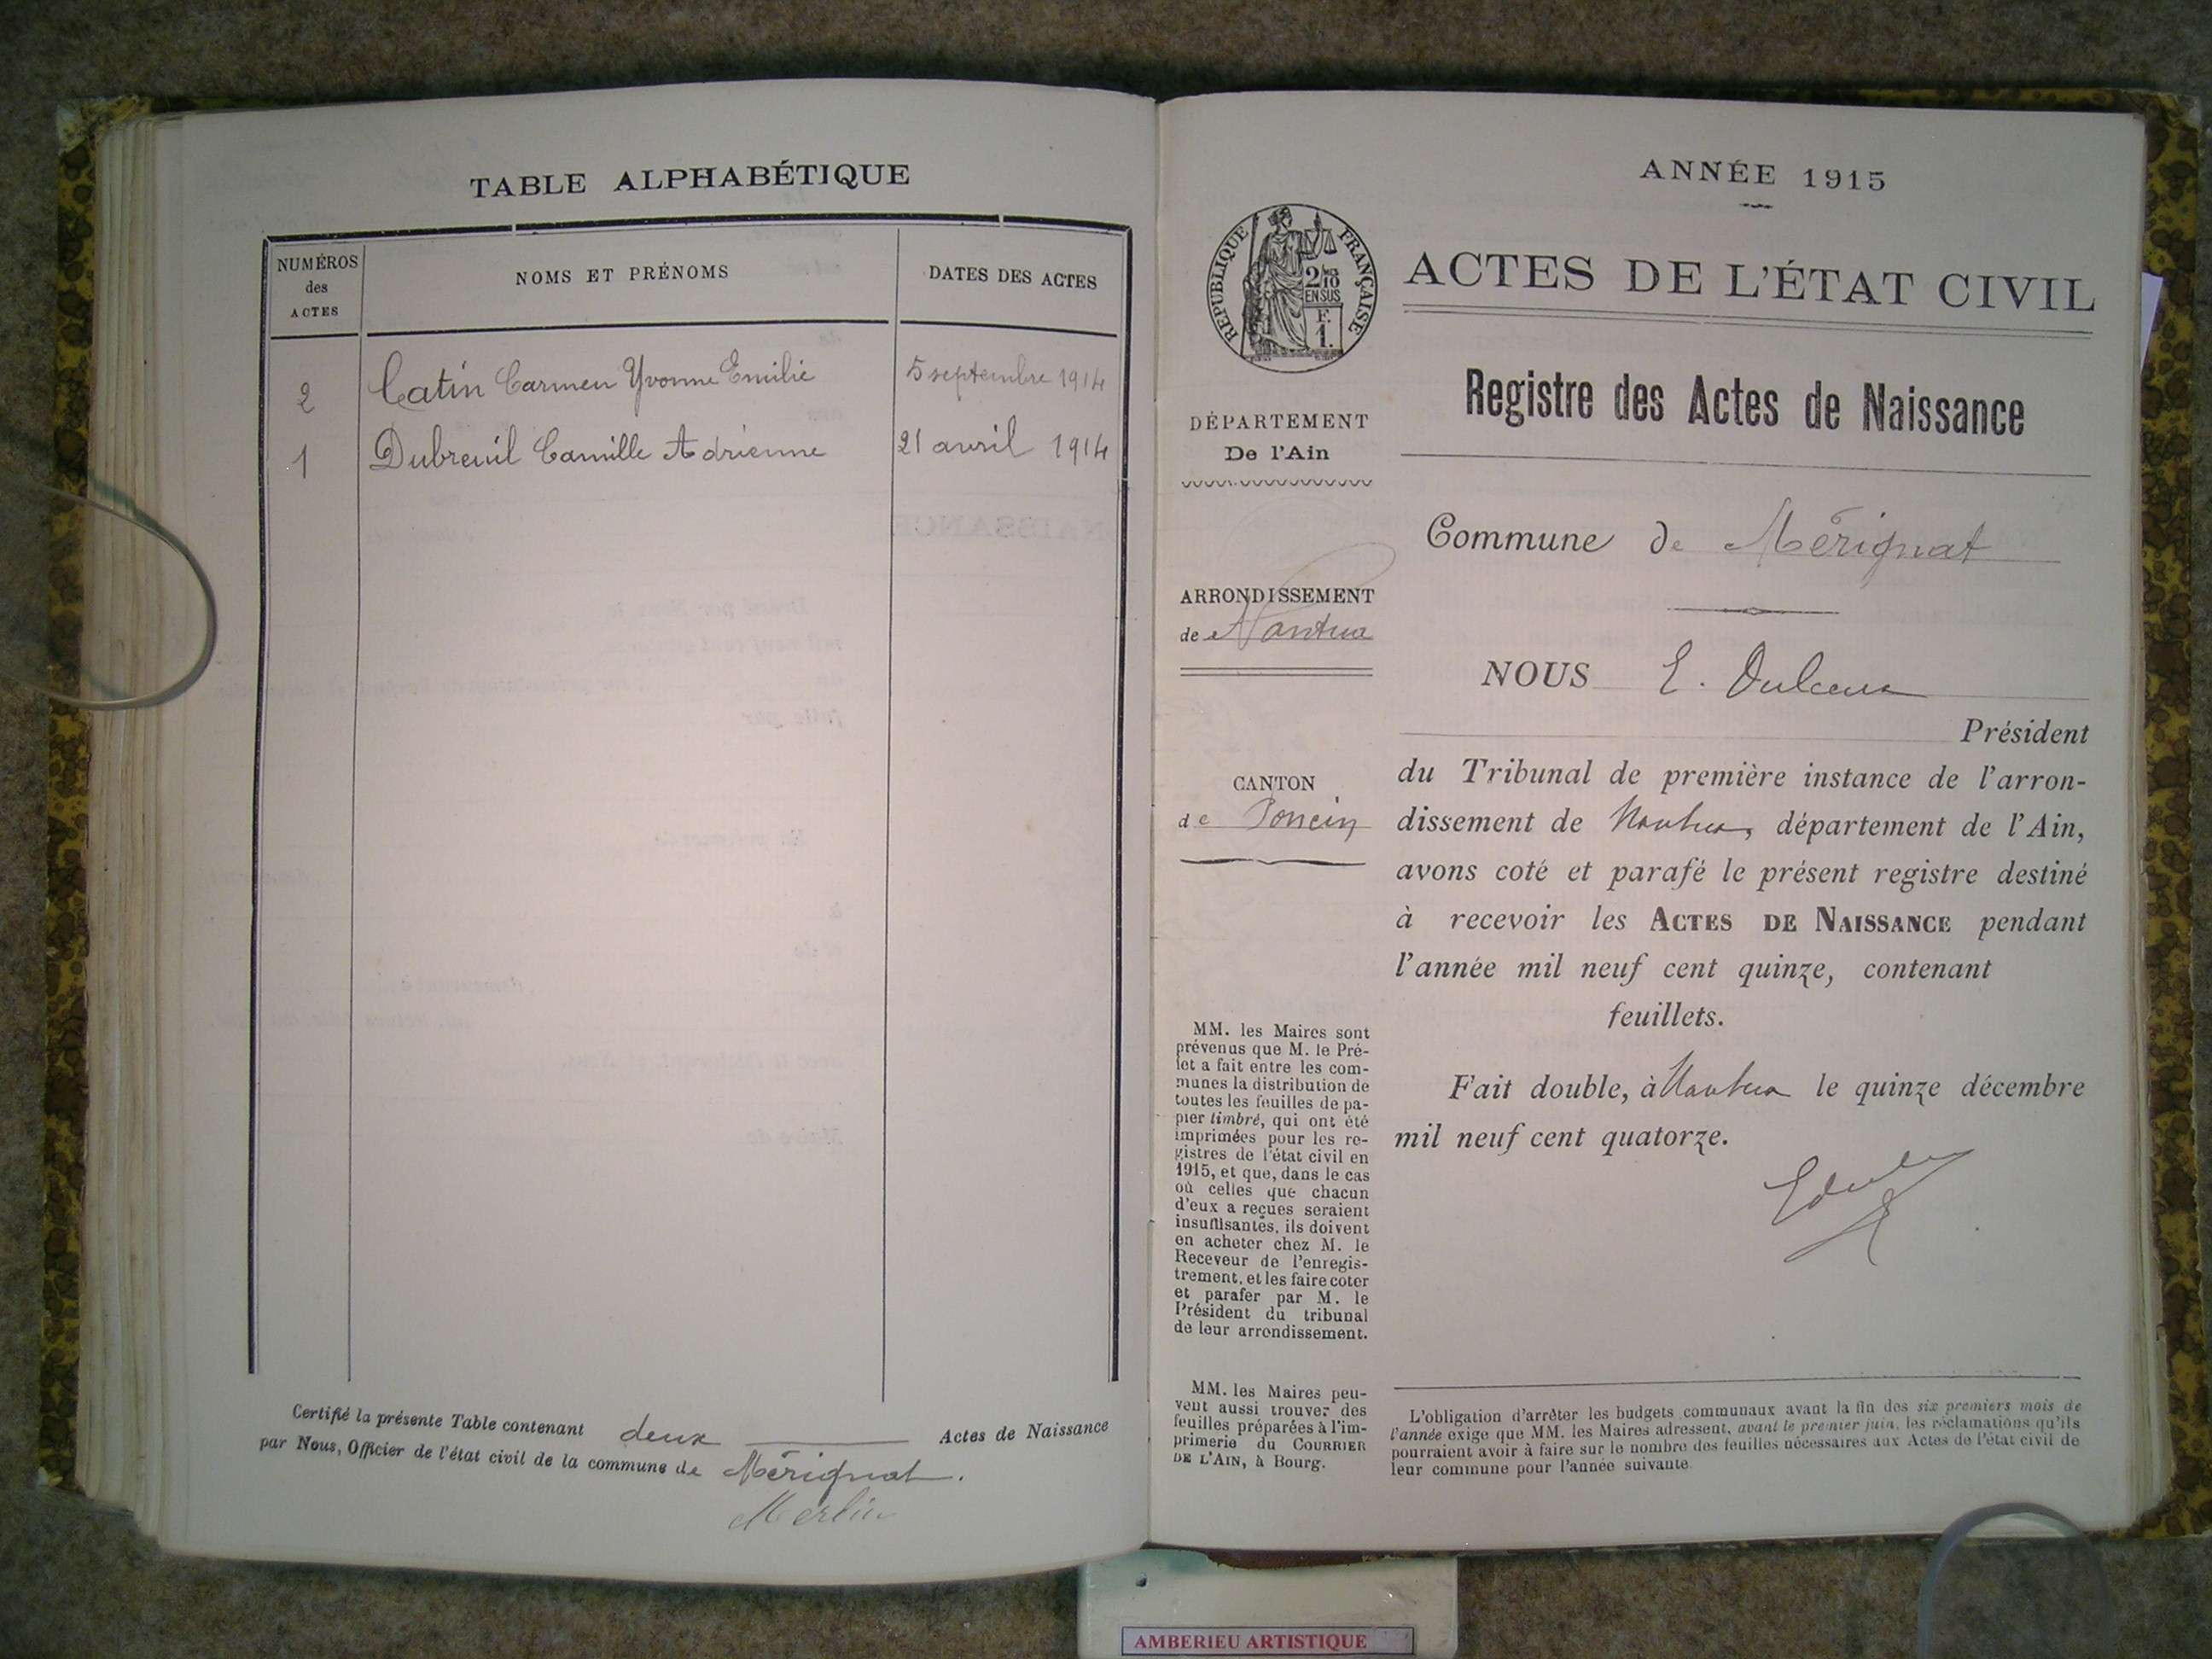 TABLE ALPHABÉTIQUE
NUMÉROS
des
ACTES
NOMS ET PRÉNOMS
DATES DES ACTES
2 Catin Carmen Yvonne Emilie 5 septembre 1914
1 Dubreuil Camille Adrienne 21 avril 1914
Certifié la présente Table contenant deux Actes de Naissance
par Nous, Officier de l'état civil de la commune de Mérignat.
Merlin
ANNÉE 1915
RÉPUBLIQUE FRANÇAISE
2/10
EN SUS
F.
1.
ACTES DE L'ÉTAT CIVIL
Registre des Actes de Naissance
DÉPARTEMENT
De l'Ain
ARRONDISSEMENT
de Nantua
CANTON
de Poncin
MM. les Maires sont
prévenus que M. le Pré-
fet a fait entre les com-
munes la distribution de
toutes les feuilles de pa-
pier timbré, qui ont été
imprimées pour les re-
gistres de l'état civil en
1915, et que, dans le cas
où celles que chacun
d'eux a reçues seraient
insuffisantes, ils doivent
en acheter chez M. le
Receveur de l'enregis-
trement, et les faire coter
et parafer par M. le
Président du tribunal
de leur arrondissement.
MM. les Maires peu-
vent aussi trouver des
feuilles préparées à l'im-
primerie du COURRIER
DE L'AIN, à Bourg.
Commune de Mérignat
NOUS E.
Président
du Tribunal de première instance de l'arron-
dissement de Nantua, département de l'Ain,
avons coté et parafé le présent registre destiné
à recevoir les ACTES DE NAISSANCE pendant
l'année mil neuf cent quinze, contenant
feuillets.
Fait double, à Nantua le quinze décembre
mil neuf cent quatorze.
L'obligation d'arrêter les budgets communaux avant la fin des six premiers mois de
l'année exige que MM. les Maires adressent, avant le premier juin, les réclamations qu'ils
pourraient avoir à faire sur le nombre des feuilles nécessaires aux Actes de l'état civil de
leur commune pour l'année suivante.
AMBERIEU ARTISTIQUE